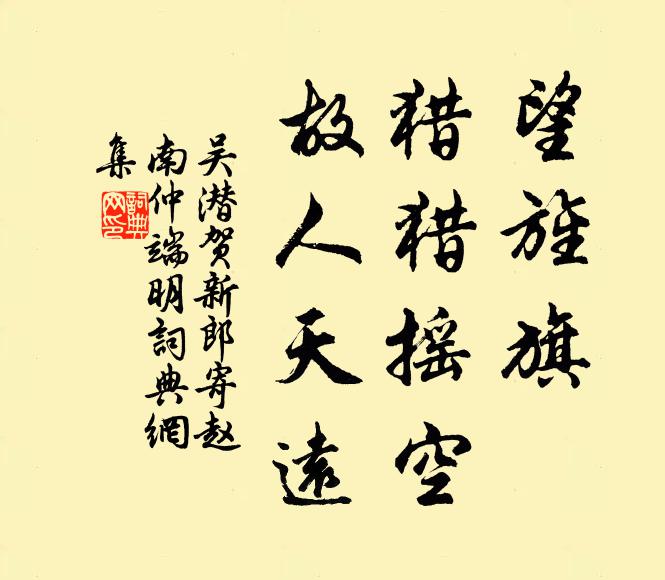 望旌旗
猎猎摇空
故人天遠
吴潜贺新郎寄赵
南仲端明詞典網
集
詞典網印